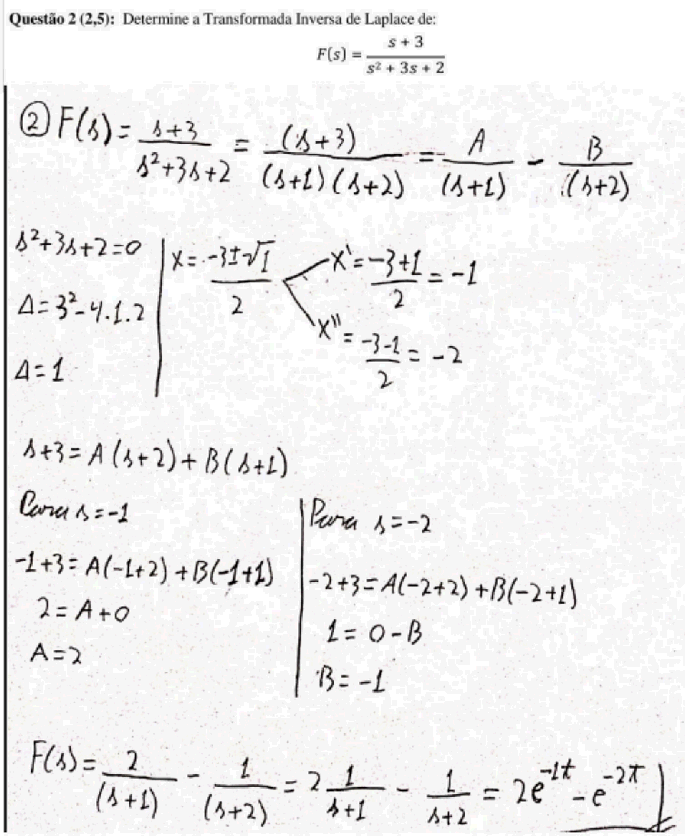 Questão 2 (2,5): Determine a Transformada Inversa de Laplace de:
F(s) = (s + 3)/(s² + 3s + 2)
② F(s) = (s+3)/(s²+3s+2) = (s+3)/((s+1)(s+2)) = A/(s+1) - B/(s+2)
s²+3s+2=0
Δ=3²-4.1.2
Δ=1
x = (-3±√1)/2
x' = (-3+1)/2 = -1
x'' = (-3-1)/2 = -2
s+3 = A(s+2) + B(s+1)
Para s=-1
-1+3 = A(-1+2) + B(-1+1)
2 = A+0
A=2
Para s=-2
-2+3 = A(-2+2) + B(-2+1)
1 = 0-B
B = -1
F(s) = 2/(s+1) - 1/(s+2) = 2 1/(s+1) - 1/(s+2) = 2e^(-1t) - e^(-2t)